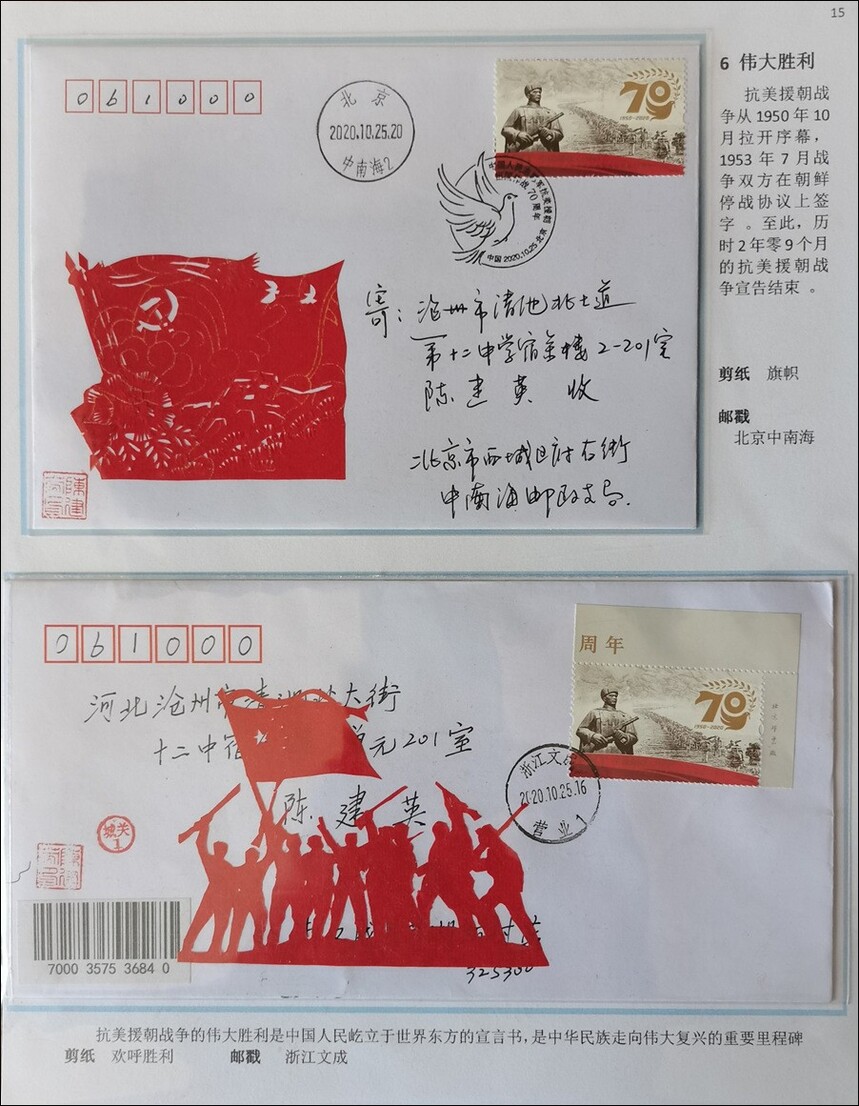 15
6 伟大胜利
抗美援朝战
争从 1950 年 10
月拉开序幕，
1953 年 7 月战
争双方在朝鲜
停战协议上签
字 。至此，历
时 2 年零 9 个月
的抗美援朝战
争宣告结束 。
剪纸 旗帜
邮戳
北京中南海
061000
北京
2020.10.25.20
中南海2
70
1950-2020
中国 2020.10.25 北京
寄：沧州市清池北大道
第十二中学宿舍楼2-201室
陈建英 收
北京市西城区府右街
中南海邮政支局.
061000
周年
70
1950-2020
河北沧州市清池大街
十二中宿 单元201室
陈建英
浙江文成
2020.10.25.16
营业1
1
7000 3575 3684 0
325300
抗美援朝战争的伟大胜利是中国人民屹立于世界东方的宣言书，是中华民族走向伟大复兴的重要里程碑
剪纸 欢呼胜利 邮戳 浙江文成